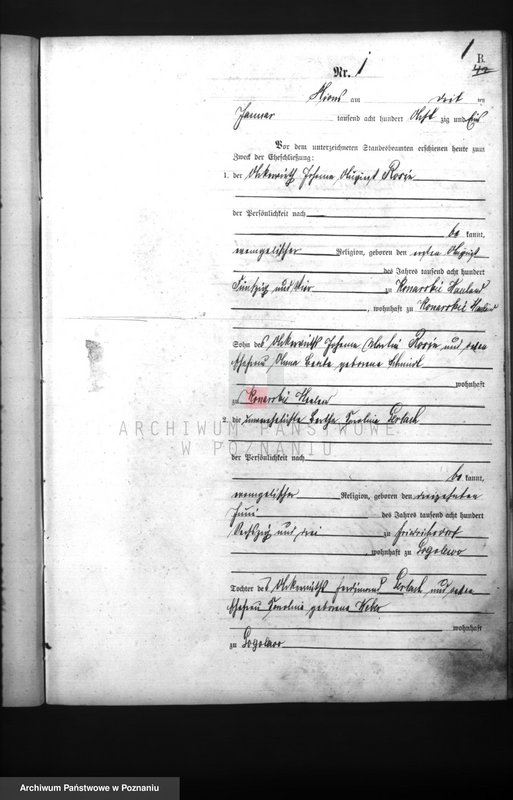 1
B.
Nr. 1
am
Januar tausend acht hundert Acht zig und Ein
Vor dem unterzeichneten Standesbeamten erschienen heute zum
Zweck der Eheschließung:
1. der Ackerwirth Johann August
der Persönlichkeit nach
be kannt,
evangelischer Religion, geboren den ersten August
des Jahres tausend acht hundert
Fünfzig und Vier zu Konarskie Hauland
, wohnhaft zu Konarskie Hauland
Sohn des Ackerwirths Johann und
Ehefrau Anna Beate geborene Schmidt
wohnhaft
zu Konarskie
2. die unverehelichte Bertha Karoline Gerlach
ARCHIWUM PAŃSTWOWE
W POZNANIU
der Persönlichkeit nach
be kannt,
evangelischer Religion, geboren den dreizehnten
Juni des Jahres tausend acht hundert
Sechszig und drei zu Friedrichsdorf
, wohnhaft zu
Tochter des Ackerwirths Ferdinand Gerlach und
Ehefrau Karoline geborene
wohnhaft
zu
Archiwum Państwowe w Poznaniu